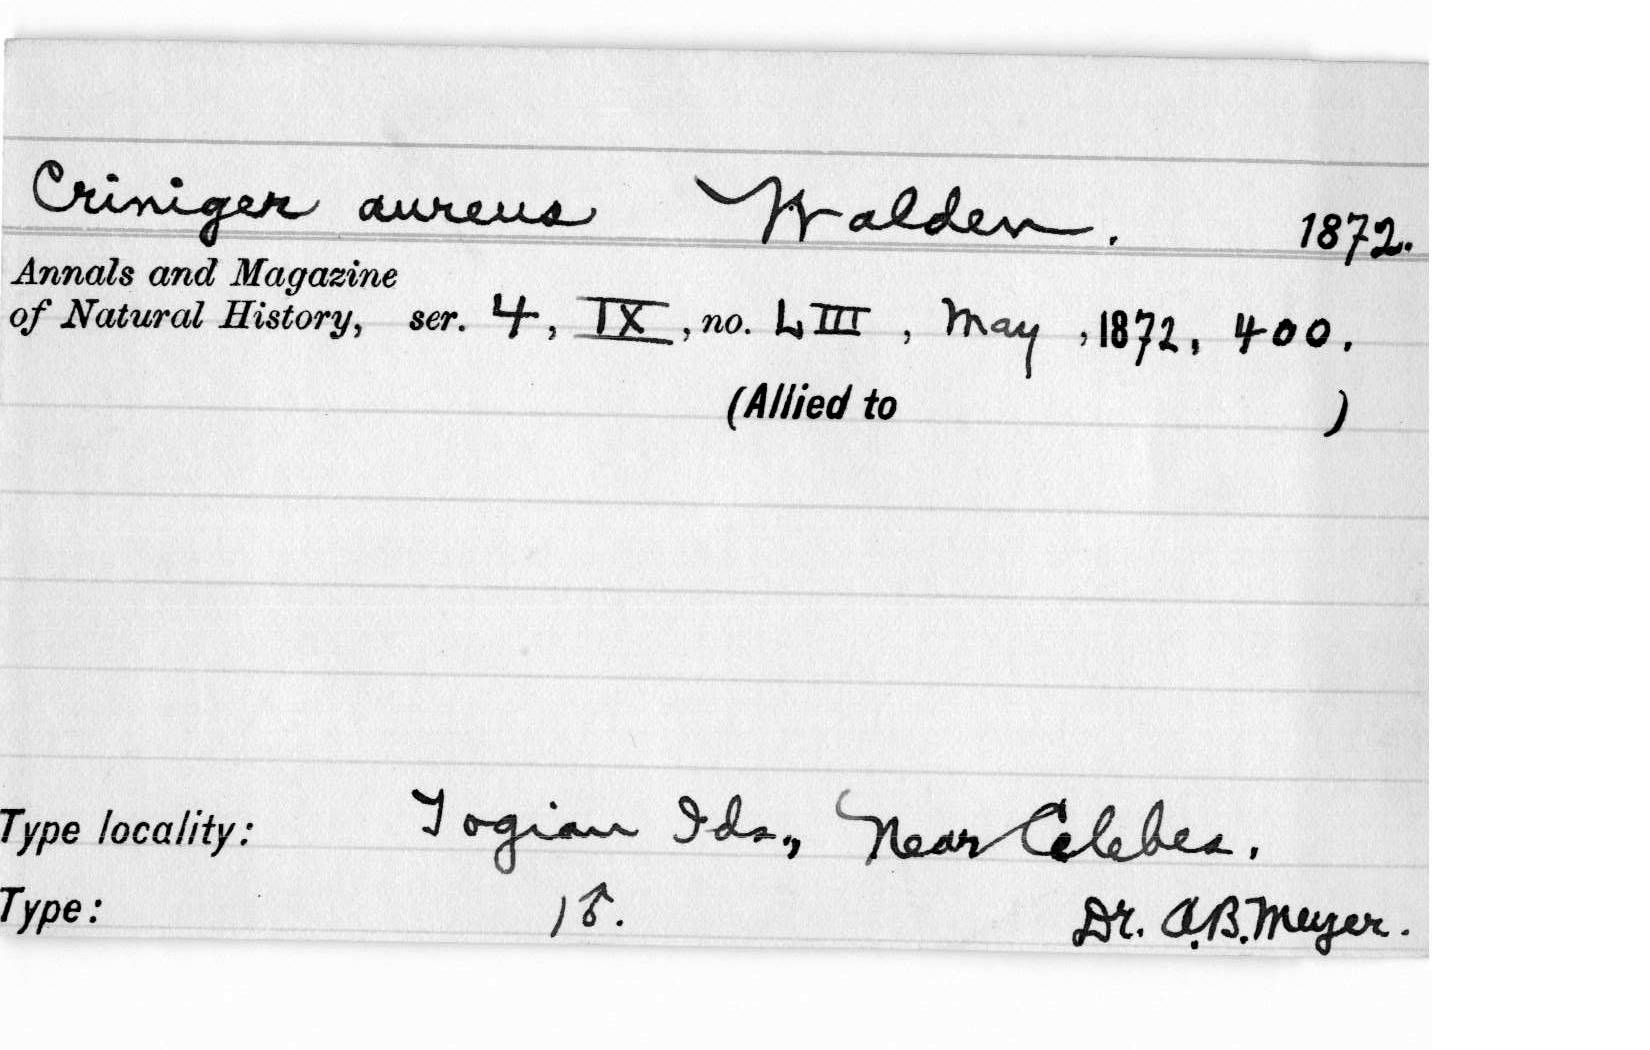 Criniger aureus Walden. 1872.
Annals and Magazine
of Natural History, ser. 4, IX, no. LIII, May, 1872, 400.
(Allied to )
Type locality: Togian Ids., Near Celebes.
Type: 1♂. Dr. A.B. Meyer.